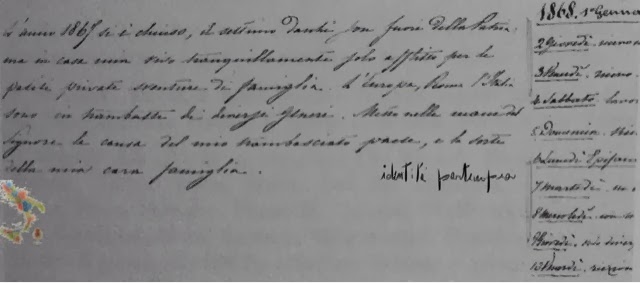 L'anno 1867 si è chiuso, il settimo dacchè son fuori della Patria,
ma in casa mia vivo tranquillamente solo afflitto per le
patite private sventure di famiglia. L'Europa, Roma l'Italia
sono in trambusto di diverso genere. Metto nelle mani del
Signore la causa del mio trambasciato paese, e la sorte
della mia cara famiglia.
identità partenopea
1868. 1° Genna
2. Giovedì
3. Venerdì
4. Sabbato
5. Domenica
6. Lunedì Epifani
7. Martedì
8. Mercoledì
9. Giovedì
10. Venerdì